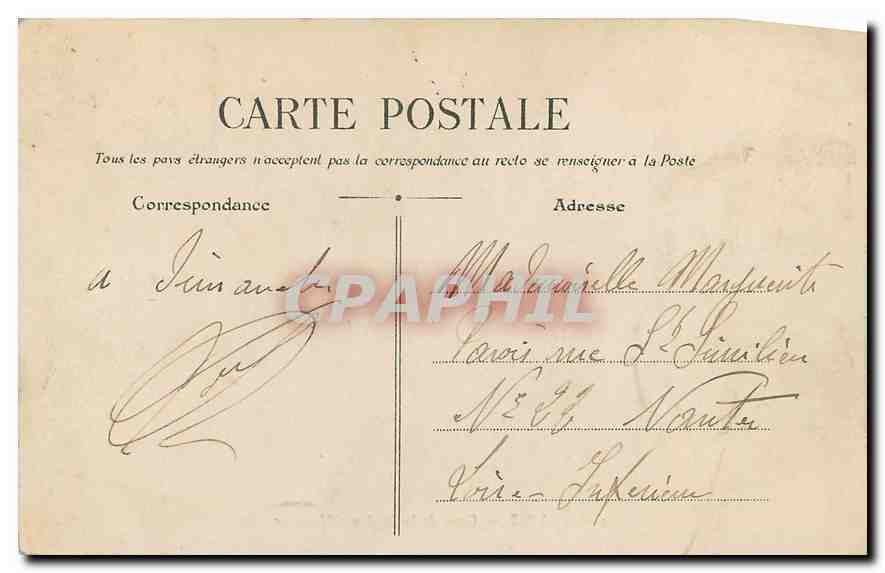 CARTE POSTALE
Tous les pays étrangers n'acceptent pas la correspondance au recto se renseigner à la Poste
Correspondance
Adresse
a Dimanche
CPAPHIL
Mademoiselle Marguerite
rue St Similien
No 22 Nantes
Loire-Inférieure